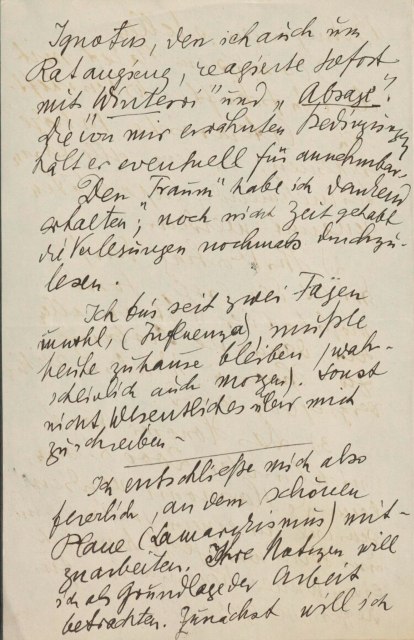 Ignotus, den ich auch um
Rat anging, reagierte sofort
mit " und „Absage".
Die von mir erwähnten Bedingungen
hält er eventuell für annehmbar.
Den „Traum" habe ich dankend
erhalten; noch nicht Zeit gehabt
die Vorlesungen nochmals durchzu-
lesen.
Ich bin seit zwei Tagen
unwohl, (Influenza), mußte
heute zuhause bleiben (wahr-
scheinlich auch morgen). Sonst
nichts Wesentliches über mich
zu schreiben –
Ich entschließe mich also
feierlich, an dem schönen
Plane (Lamarckismus) mit-
zuarbeiten. Ihre Notizen will
ich als Grundlage der Arbeit
betrachten. Zunächst will ich